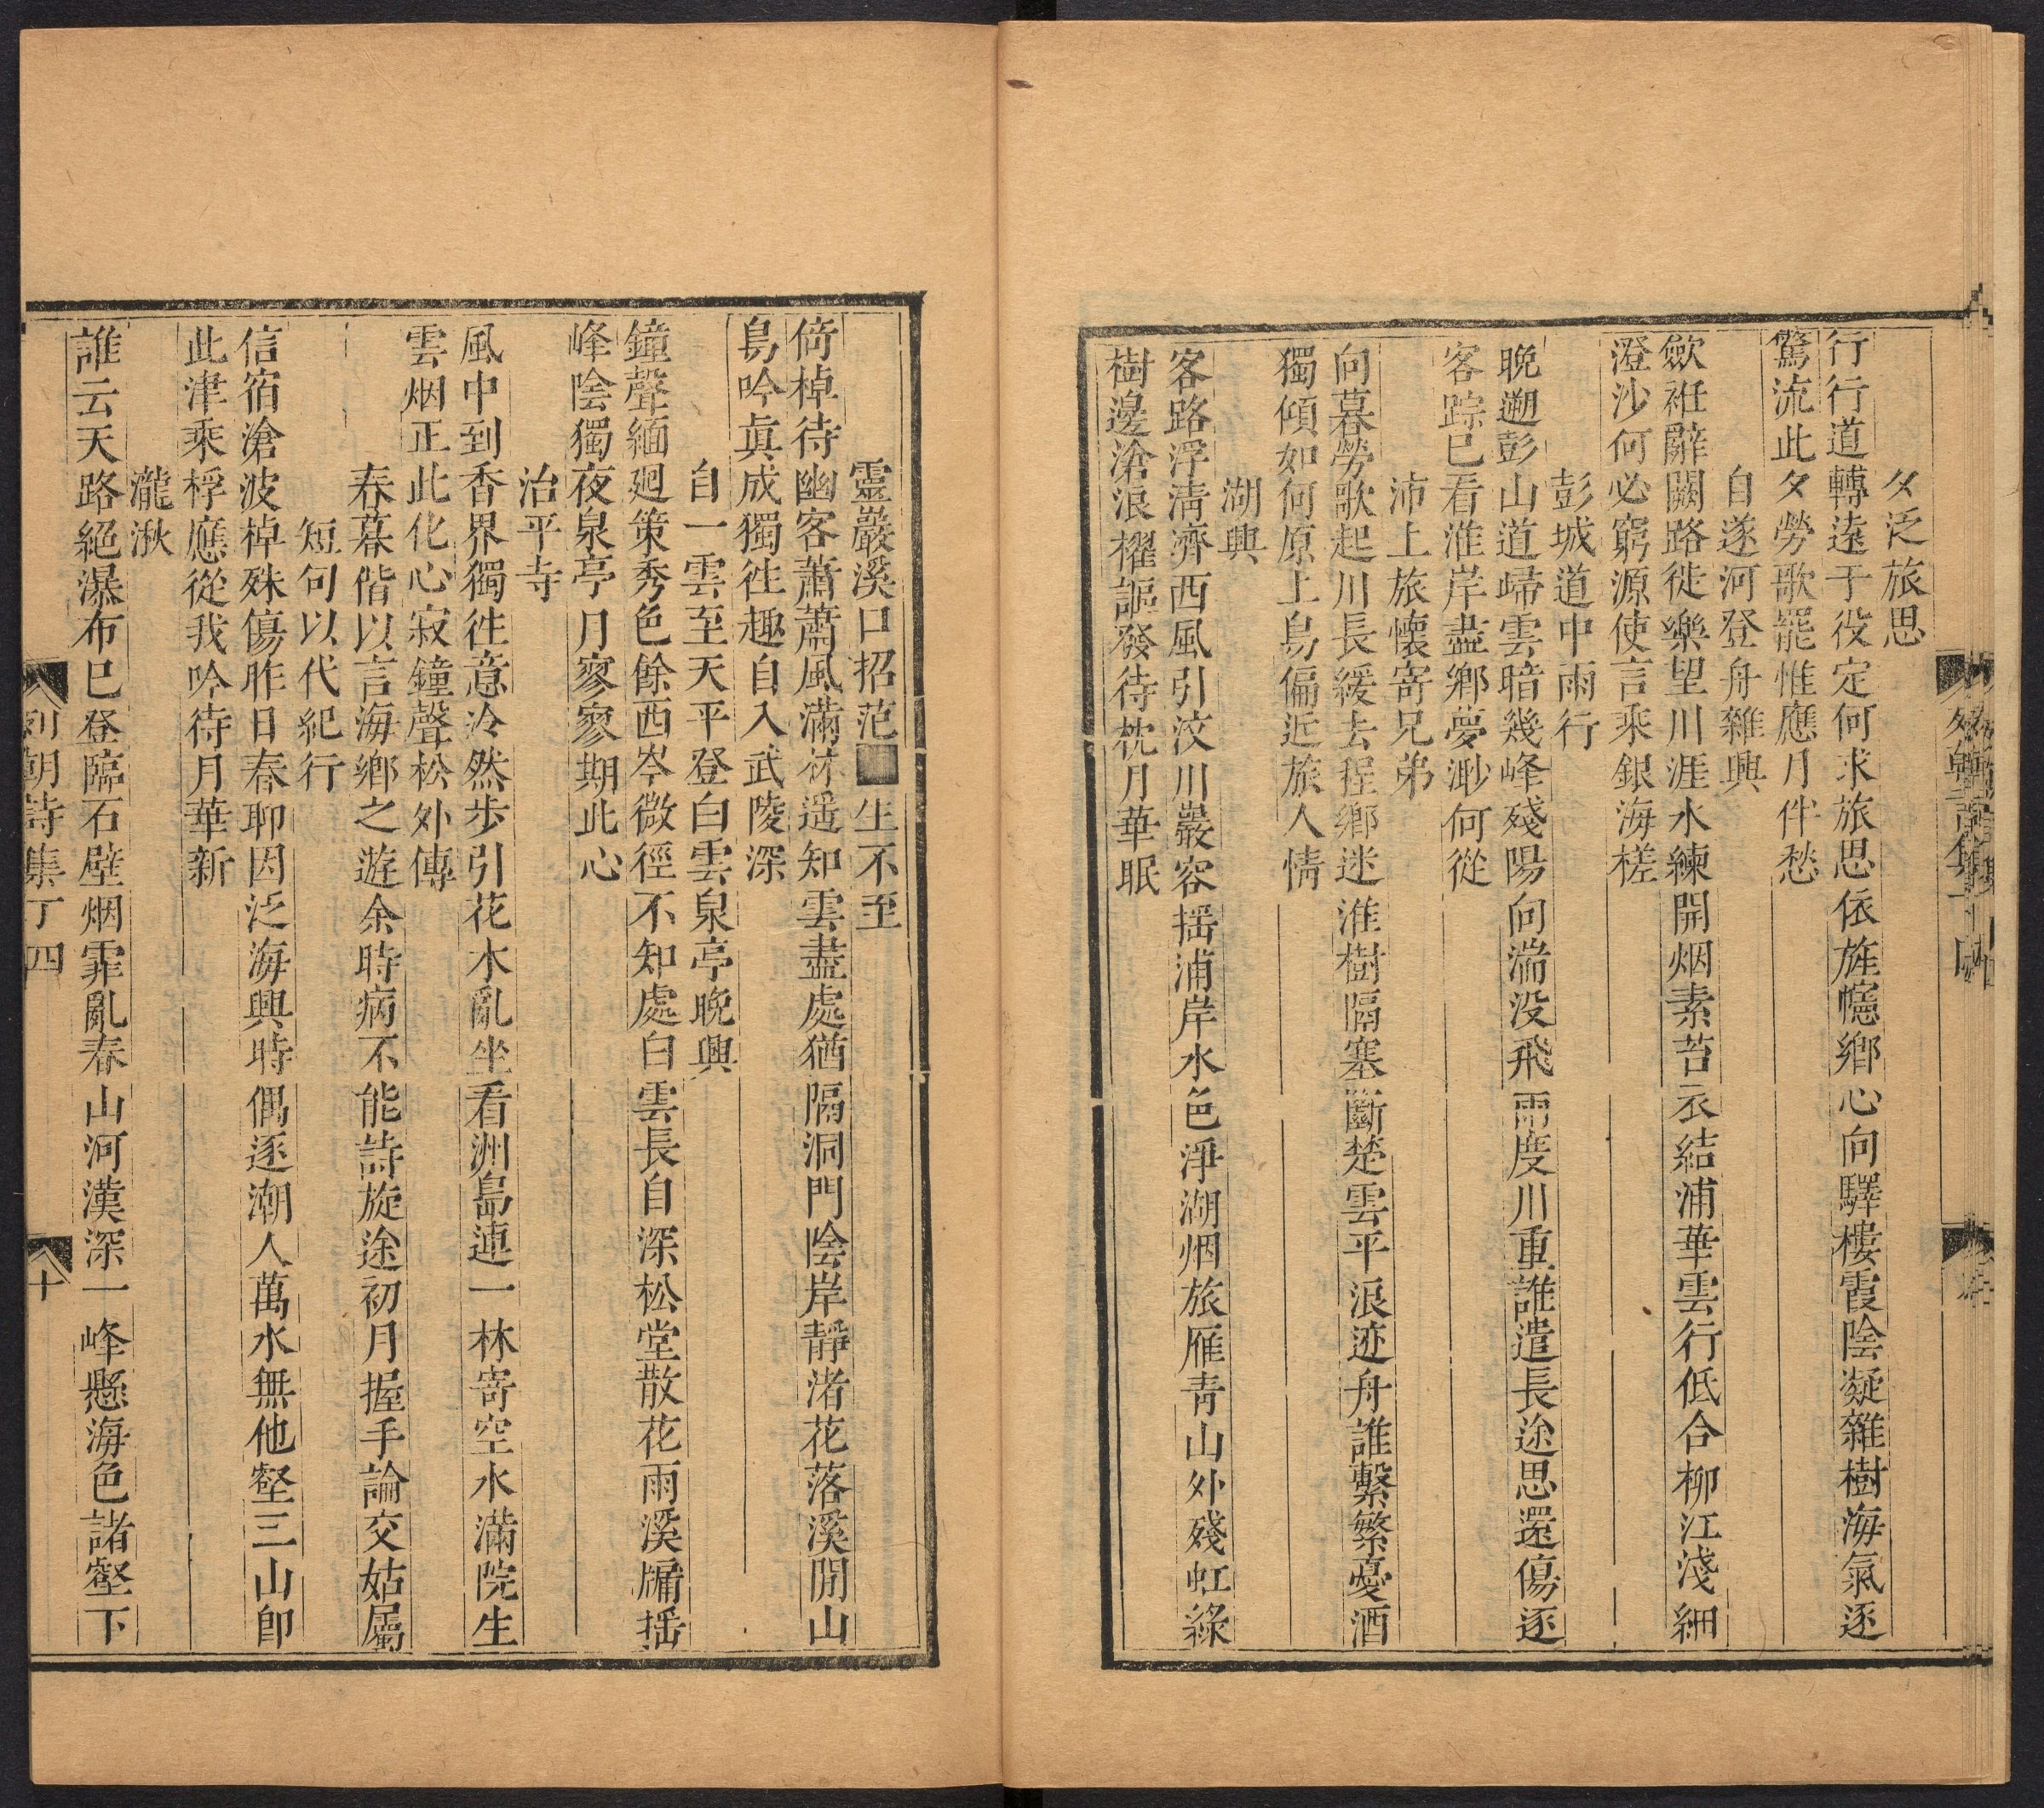 夕泛旅思
行行道轉遠于役定何求旅思依旌幰鄉心向驛樓霞陰凝雜樹海氣逐
驚流此夕勞歌罷惟應月伴愁
自遂河登舟雜興
歛袵辭闕路徙樂望川涯水練開烟素苔衣結浦華雲行低合柳江淺細
澄沙何必窮源使言乘銀海槎
彭城道中雨行
晚遡彭山道歸雲暗幾峰殘陽向湍没飛雨度川重誰遣長途思還傷逐
客踪巳看淮岸盡鄉夢渺何從
沛上旅懷寄兄弟
向暮勞歌起川長緩去捏鄉迷淮樹隔塞斷楚雲平浪迹舟誰繫繁憂酒
獨傾如何原上鳥偏近旅人情
湖興
客路浮淸濟西風引汶川巖容揺浦岸水色淨湖烟旅雁青山外殘虹綠
樹邊滄浪櫂謳發待枕月華眠
靈巖溪口招范生不至
倚棹待幽客蕭蕭風滿林遥知雲盡處猶隔洞門陰岸靜渚花落溪閒山
鳥吟眞成獨徃趣自入武陵深
自一雲至天平登白雲泉亭晚興
鐘聲緬廻策秀色餘西岑微徑不知處白雲長自深松堂散花雨溪牖揺
峰陰獨夜泉亭月寥寥期此心
治平寺
風中到香界獨徃意泠然步引花水亂坐看洲島連一林寄空水滿院生
雲烟正此化心寂鐘聲松外傳
春暮偕以言海鄉之遊余時病不能詩旋途初月握手論交姑屬
短句以代紀行
信宿滄波棹殊傷昨日春聊因泛海興時偶逐潮人萬水無他壑三山卽
此津乘桴應從我吟待月華新
瀧湫
誰云天路絕瀑布巳登臨石壁烟霏亂春山河漢深一峰懸海色諸壑下
列朝詩集丁四
十